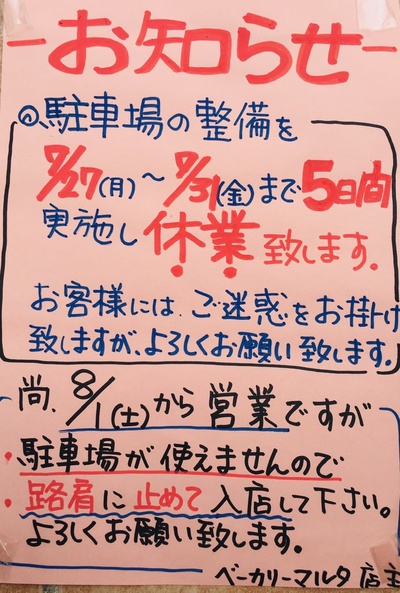 ーお知らせー
駐車場の整備を
7/27(月)〜7/31(金)まで5日間
実施し休業致します。
お客様には、ご迷惑をお掛け
致しますが、よろしくお願い致します。
尚、8/1(土)から営業ですが
・駐車場が使えませんので
・路肩に止めて入店して下さい。
よろしくお願い致します。
ベーカリーマルタ 店主